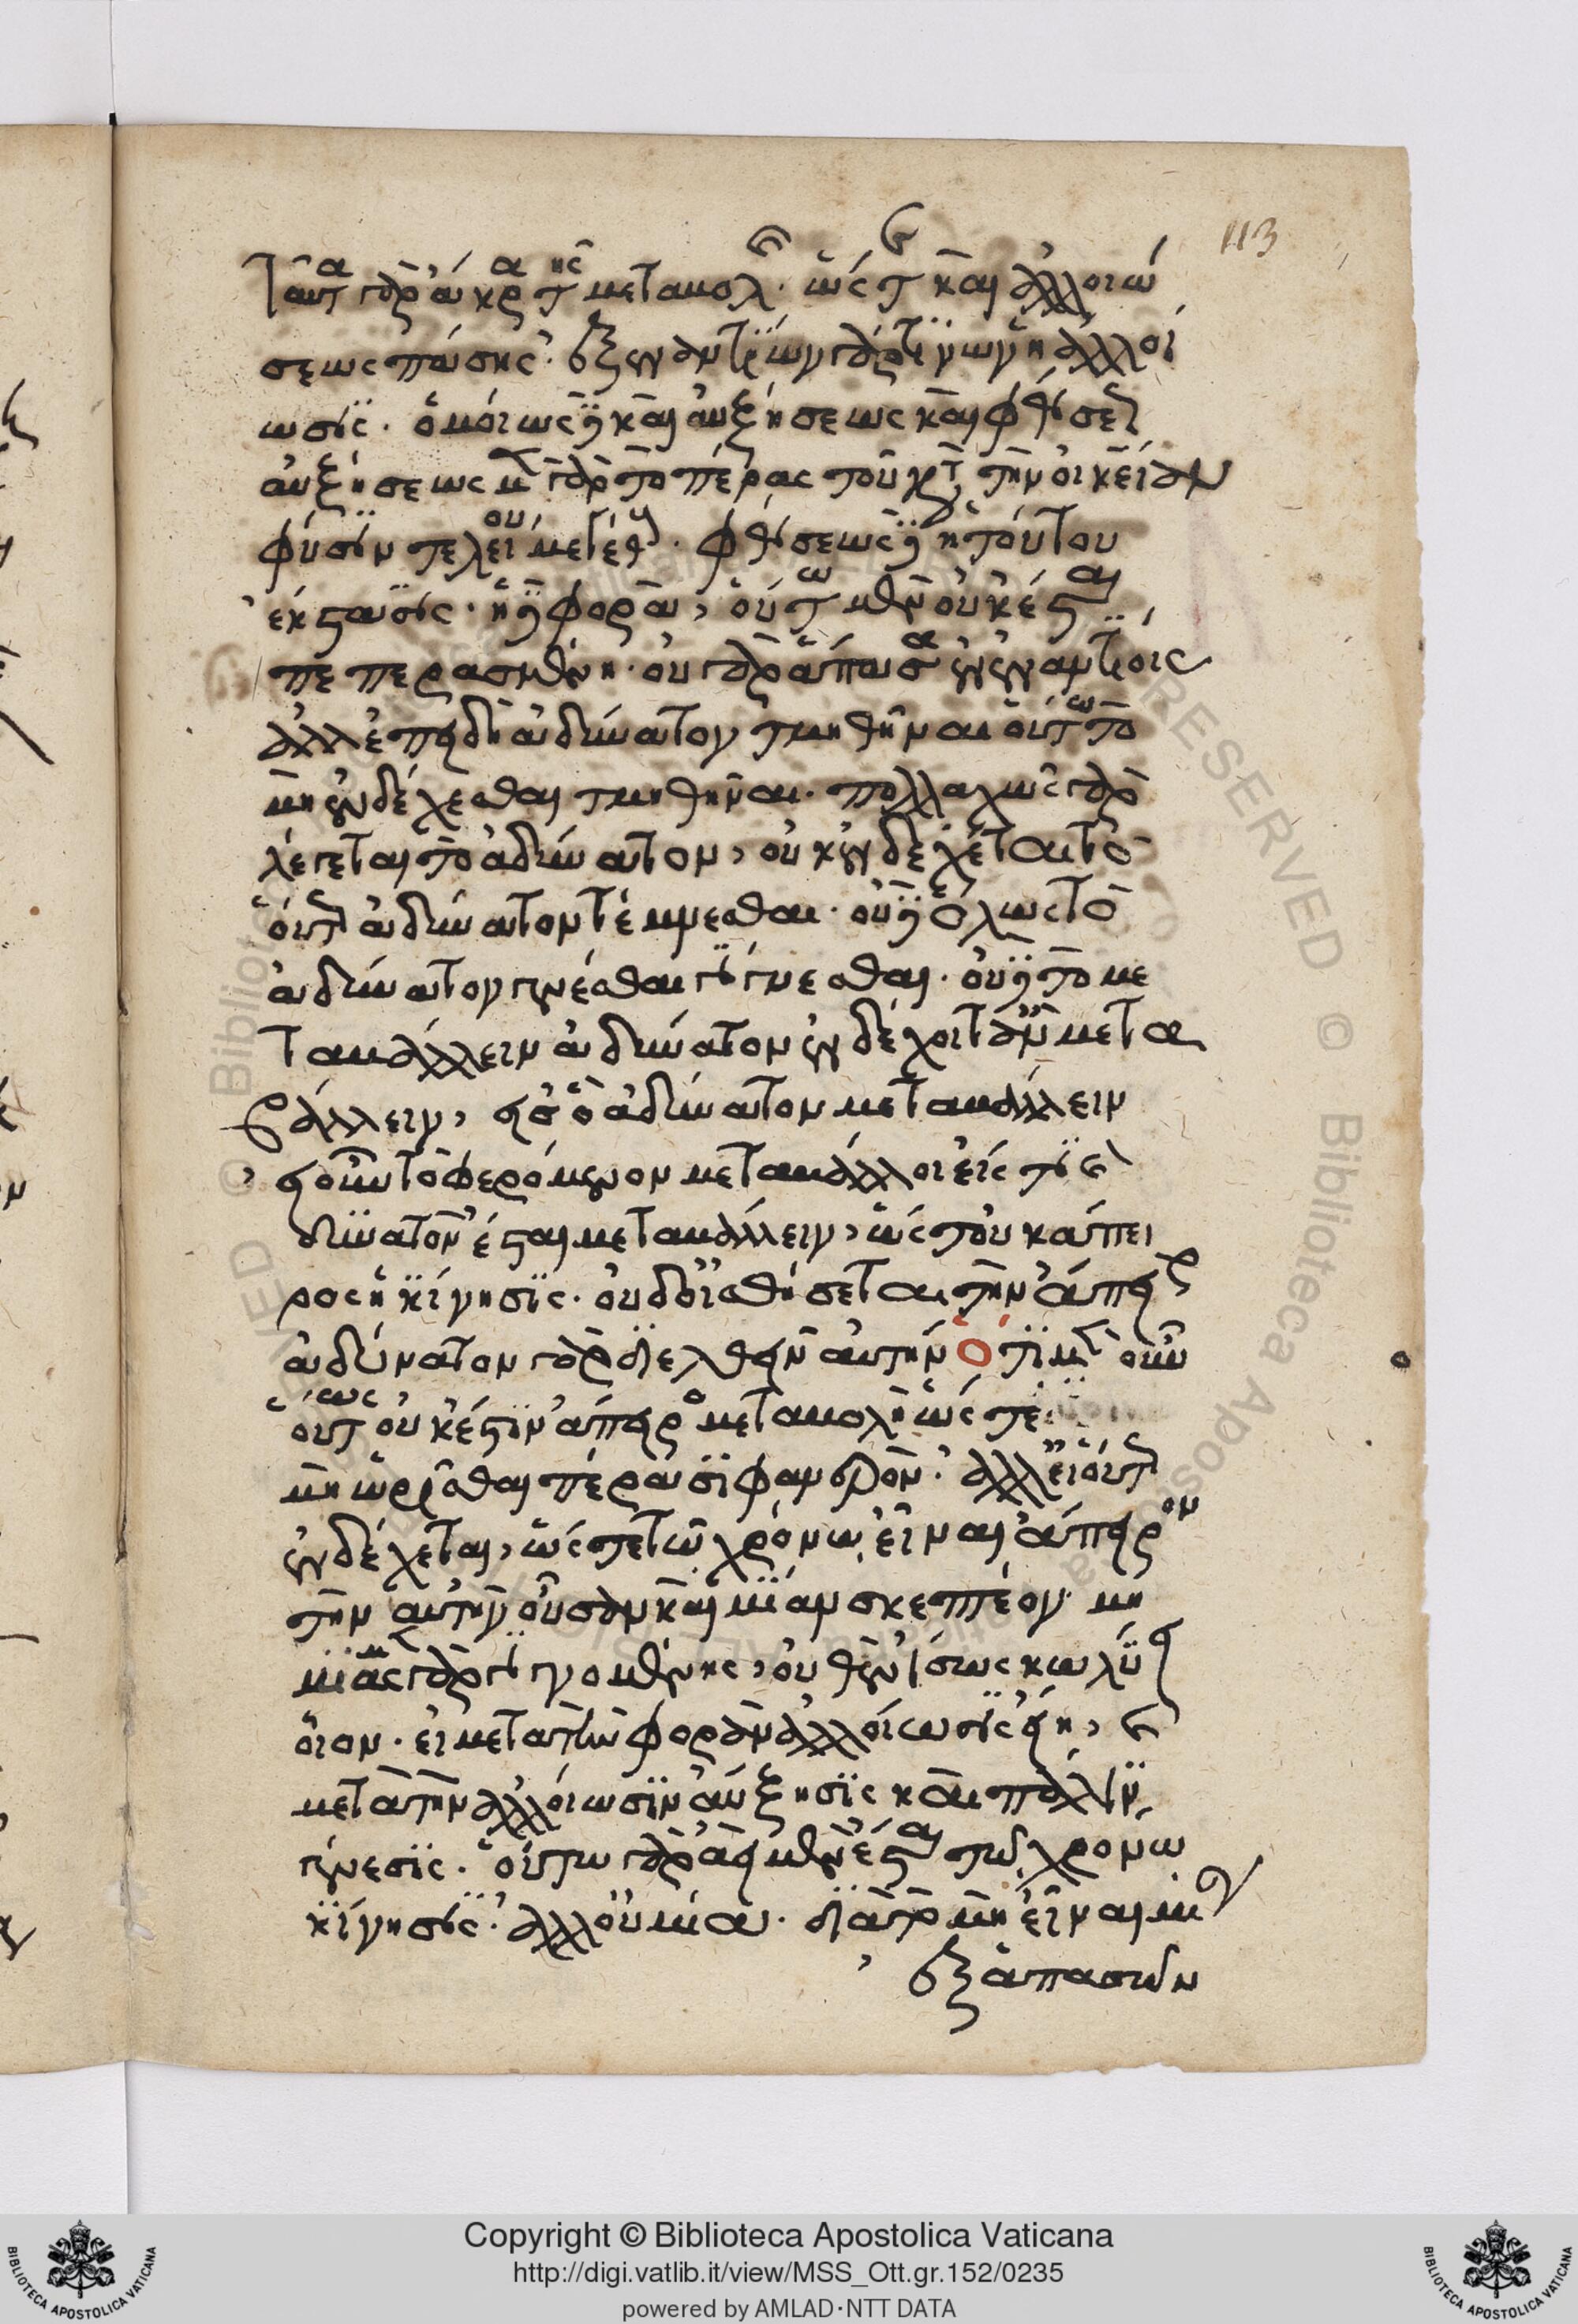 113
ταῦτα γὰρ ἄκρα τῆς μεταβολῆς· ὥστε καὶ ἀλλοιώ
σεως πάσης· ἐξ ἐναντίων γάρ τινων ἡ ἀλλοί
ωσις. ὁμοίως δὲ καὶ αὐξήσεως καὶ φθίσεως
αὐξήσεως μὲν γὰρ τὸ πέρας τοῦ κατὰ τὴν οἰκείαν
φύσιν τελείου μεγέθους. φθίσεως δὲ ἡ τούτου
ἔκστασις. ἡ δὲ φορὰ, οὕτω μὲν οὐκ ἔσται
πεπερασμένη. οὐ γὰρ ἅπασα ἐν ἐναντίοις
ἀλλ ἐπειδὴ ἀδύνατον τμηθῆναι οὕτω τὸ
μὴ ἐνδέχεσθαι τμηθῆναι. πολλαχῶς γὰρ
λέγεται τὸ ἀδύνατον, οὐκ ἐνδέχεται τὸ
οὕτως ἀδύνατον τέμνεσθαι. οὐδὲ ὅλως τὸ
ἀδύνατον γενέσθαι γίγνεσθαι. οὐδὲ τὸ με
ταβάλλειν ἀδύνατον ἐνδέχοιτ ἂν μετα
βάλλειν, εἰς ὃ ἀδύνατον μεταβάλλειν
εἰ οὖν τὸ φερόμενον μεταβάλλοι εἴς τι
δυνατὸν ἔσται μεταβάλλειν, ὥστ οὐκ ἄπει
ρος ἡ κίνησις. οὐδ οἰσθήσεται τὴν ἄπειρον
ἀδύνατον γὰρ διελθεῖν αὐτήν ὅτι μὲν οὖν
οὕτως οὐκ ἔστιν ἄπειρος μεταβολὴ ὥστε
μὴ ὡρίσθαι πέρασι φανερόν. ἀλλ εἰ οὕτως
ἐνδέχεται, ὥστε τῷ χρόνῳ εἶναι ἄπειρον
τὴν αὐτὴν οὖσαν καὶ μίαν σκεπτέον. μὴ
μιᾶς μὲν γὰρ γινομένης, οὐθὲν ἴσως κωλύει
οἷον. εἰ μετὰ τὴν φορὰν ἀλλοίωσις εἴη, καὶ
μετὰ τὴν ἀλλοίωσιν αὔξησις καὶ πάλιν
γένεσις. οὕτω γὰρ ἀεὶ μὲν ἔσται τῷ χρόνῳ
κίνησις. ἀλλ οὐ μία. διὰ τὸ μὴ εἶναι μίαν
ἐξ ἁπασῶν
Copyright © Biblioteca Apostolica Vaticana
http://digi.vatlib.it/view/MSS_Ott.gr.152/0235
powered by AMLAD·NTT DATA